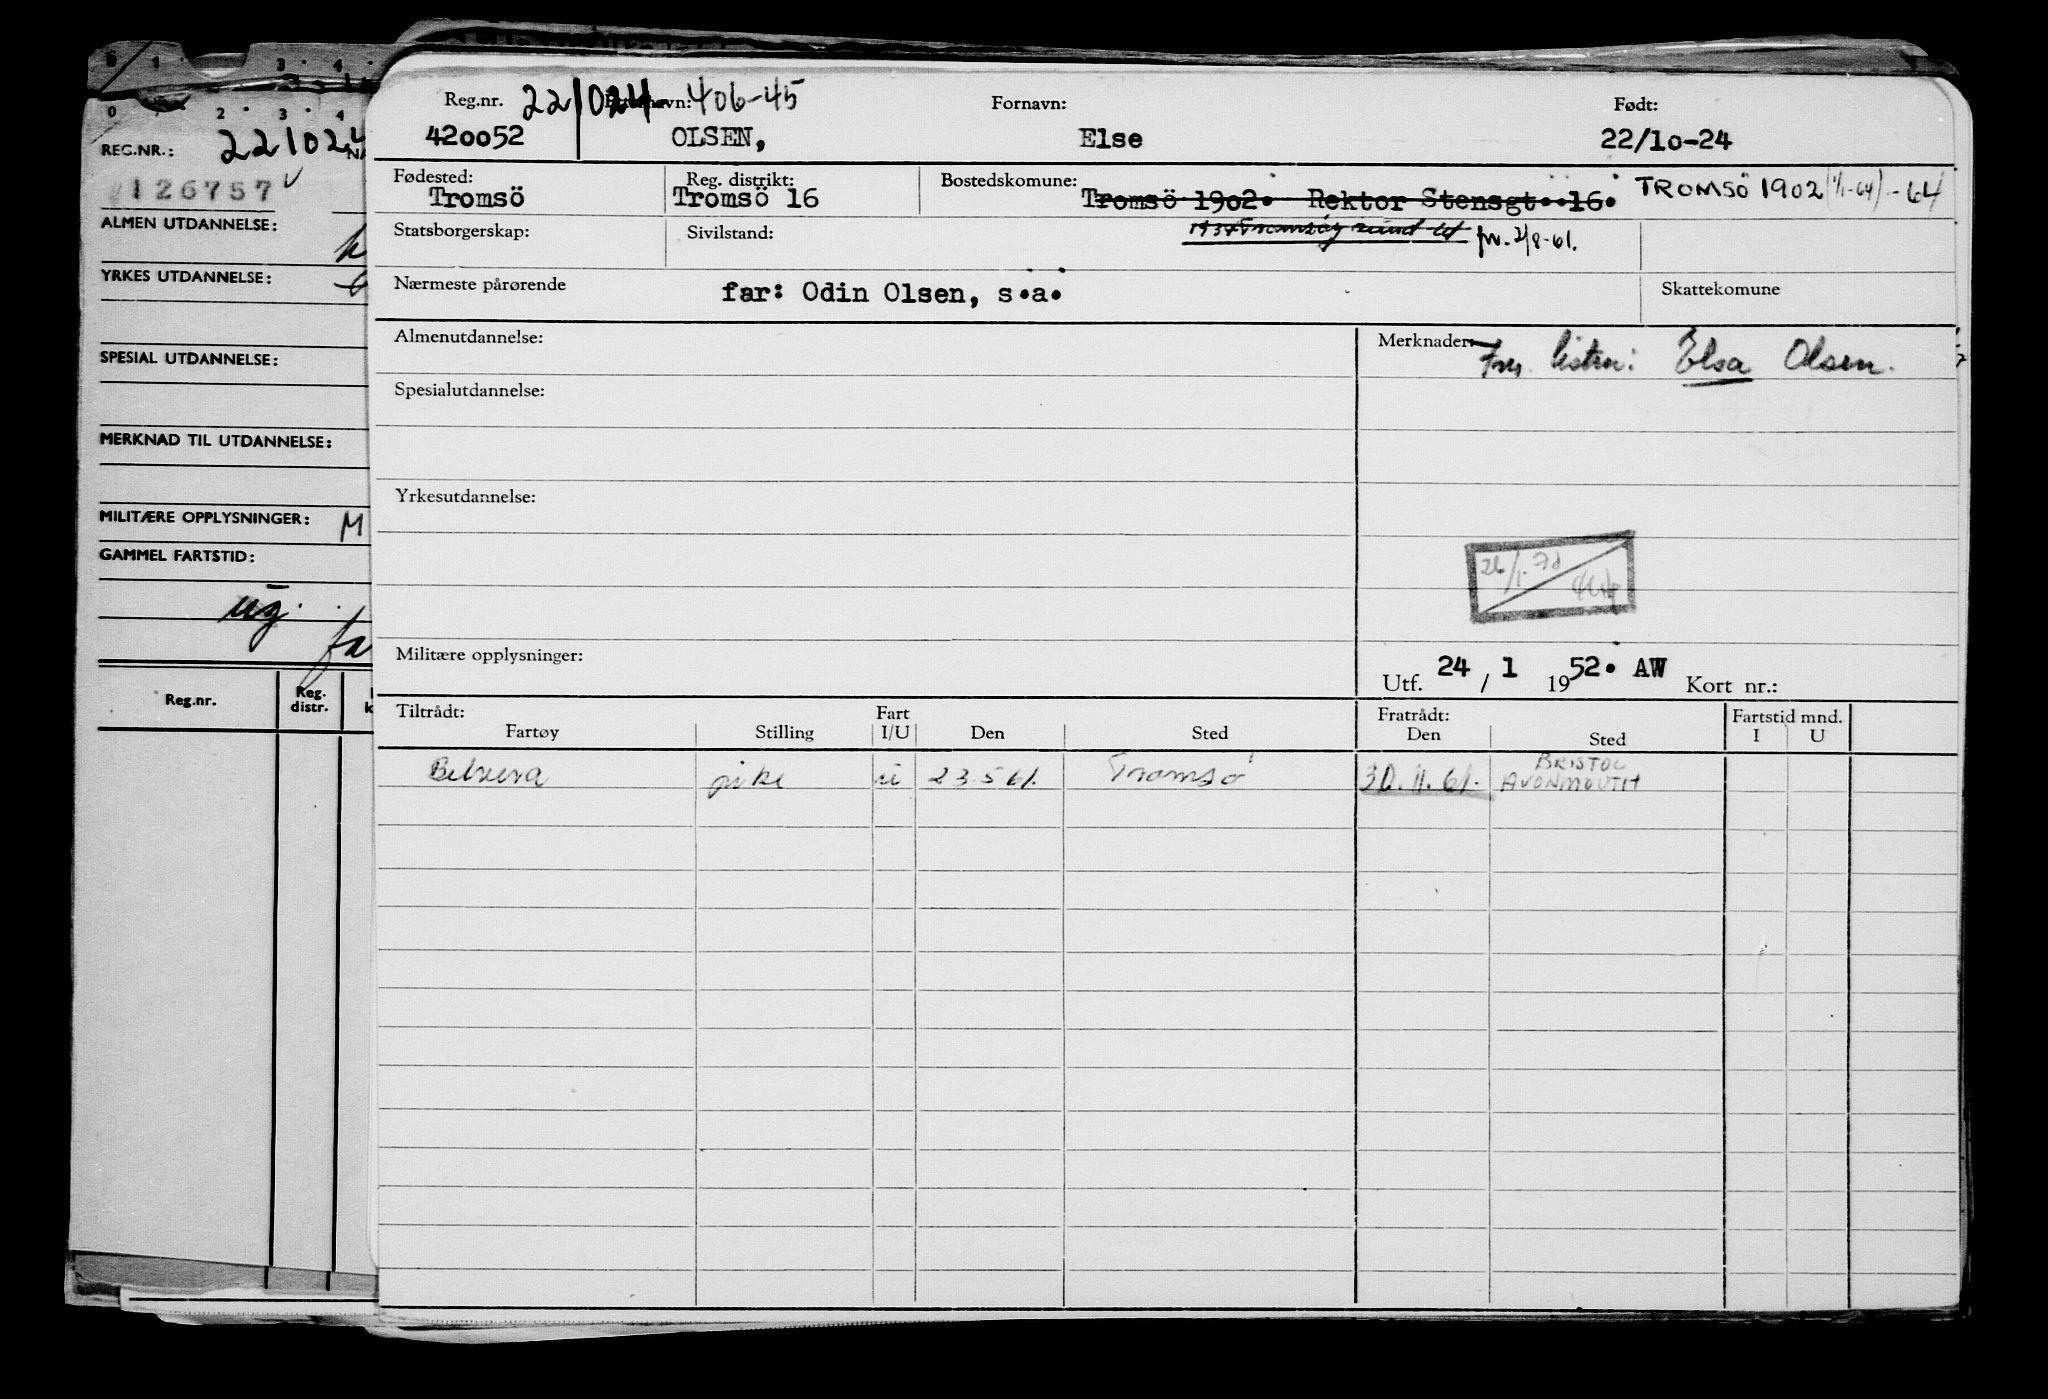 0 1 3 4
0 2 3 4
REG.NR.: 221024
126757
ALMEN UTDANNELSE:
YRKES UTDANNELSE:
SPESIAL UTDANNELSE:
MERKNAD TIL UTDANNELSE:
MILITÆRE OPPLYSNINGER: M
GAMMEL FARTSTID:
ug.
fa
Reg.nr. Reg. distr.
Reg.nr. 221024 406-45 Fornavn: Født:
420052 OLSEN, Else 22/10-24
Fødested: Reg. distrikt: Bostedskomune:
Tromsö Tromsö 16 Tromsö 1902. Rektor Stensgt. 16. TROMSÖ 1902 (1/1-64) -64
Statsborgerskap: Sivilstand: 2/8-61.
Nærmeste pårørende far: Odin Olsen, s.a. Skattekomune
Almenutdannelse: Merknader: Elsa Olsen.
Spesialutdannelse:
Yrkesutdannelse:
Militære opplysninger:
Utf. 24/1 1952. AW Kort nr.:
Tiltrådt: Fart Fratrådt: Fartstid mnd.
Fartøy Stilling I/U Den Sted Den Sted I U
Belvera pike u 23.5 61. Tromsø 30.11.61. BRISTOL
AVONMOUTH